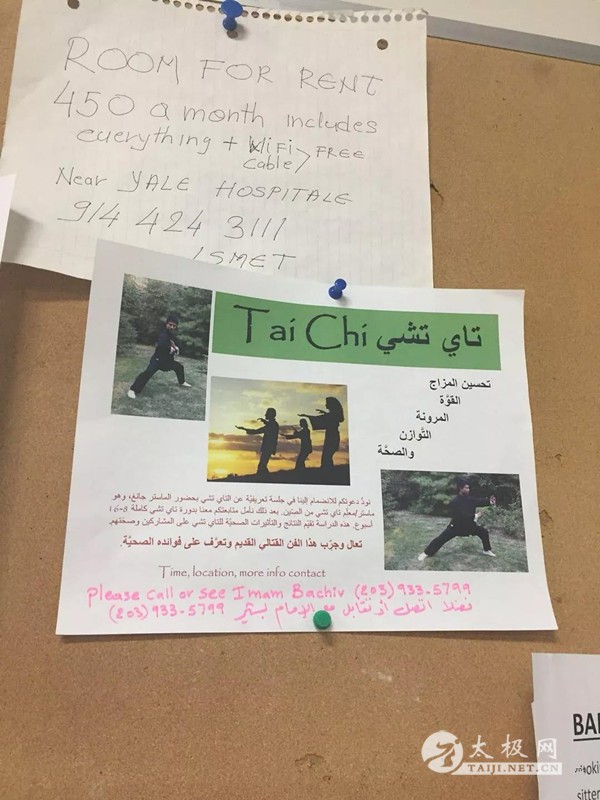 ROOM FOR RENT
450 a month includes
everything + WiFi
cable > FREE
Near YALE HOSPITALE
914 424 3111
ISMET
Tai Chi تاي تشي
تحسين المزاج
القوَّة
المرونة
التَّوازن
والصحَّة
نودُّ دعوتكم للانضمام إلينا في جلسة تعريفيَّة عن التاي تشي بحضور الماستر جانغ، وهو
ماستر/معلِّم تاي تشي من الصِّين. بعد ذلك نأمل متابعتكم معنا بدورة تاي تشي كاملة 8-16
أسبوع. هذه الدراسة تقيّم النتائج والتأثيرات الصحيَّة للتاي تشي على المشاركين وصحتهم.
تعال وجرِّب هذا الفن القتالي القديم وتعرَّف على فوائده الصحيَّة.
Time, location, more info contact
Please call or see Imam Bachiv (203) 933-5799
فضلا اتصل او تقابل مع الإمام (203) 933-5799
BAB
sitter
太极网
TAIJI.NET.CN